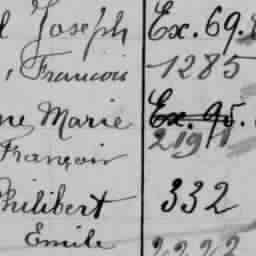 Joseph Ex. 69.
, Francois 1285
ne Marie Ex. 95.
François 2191
Philibert 332
Emile 2222